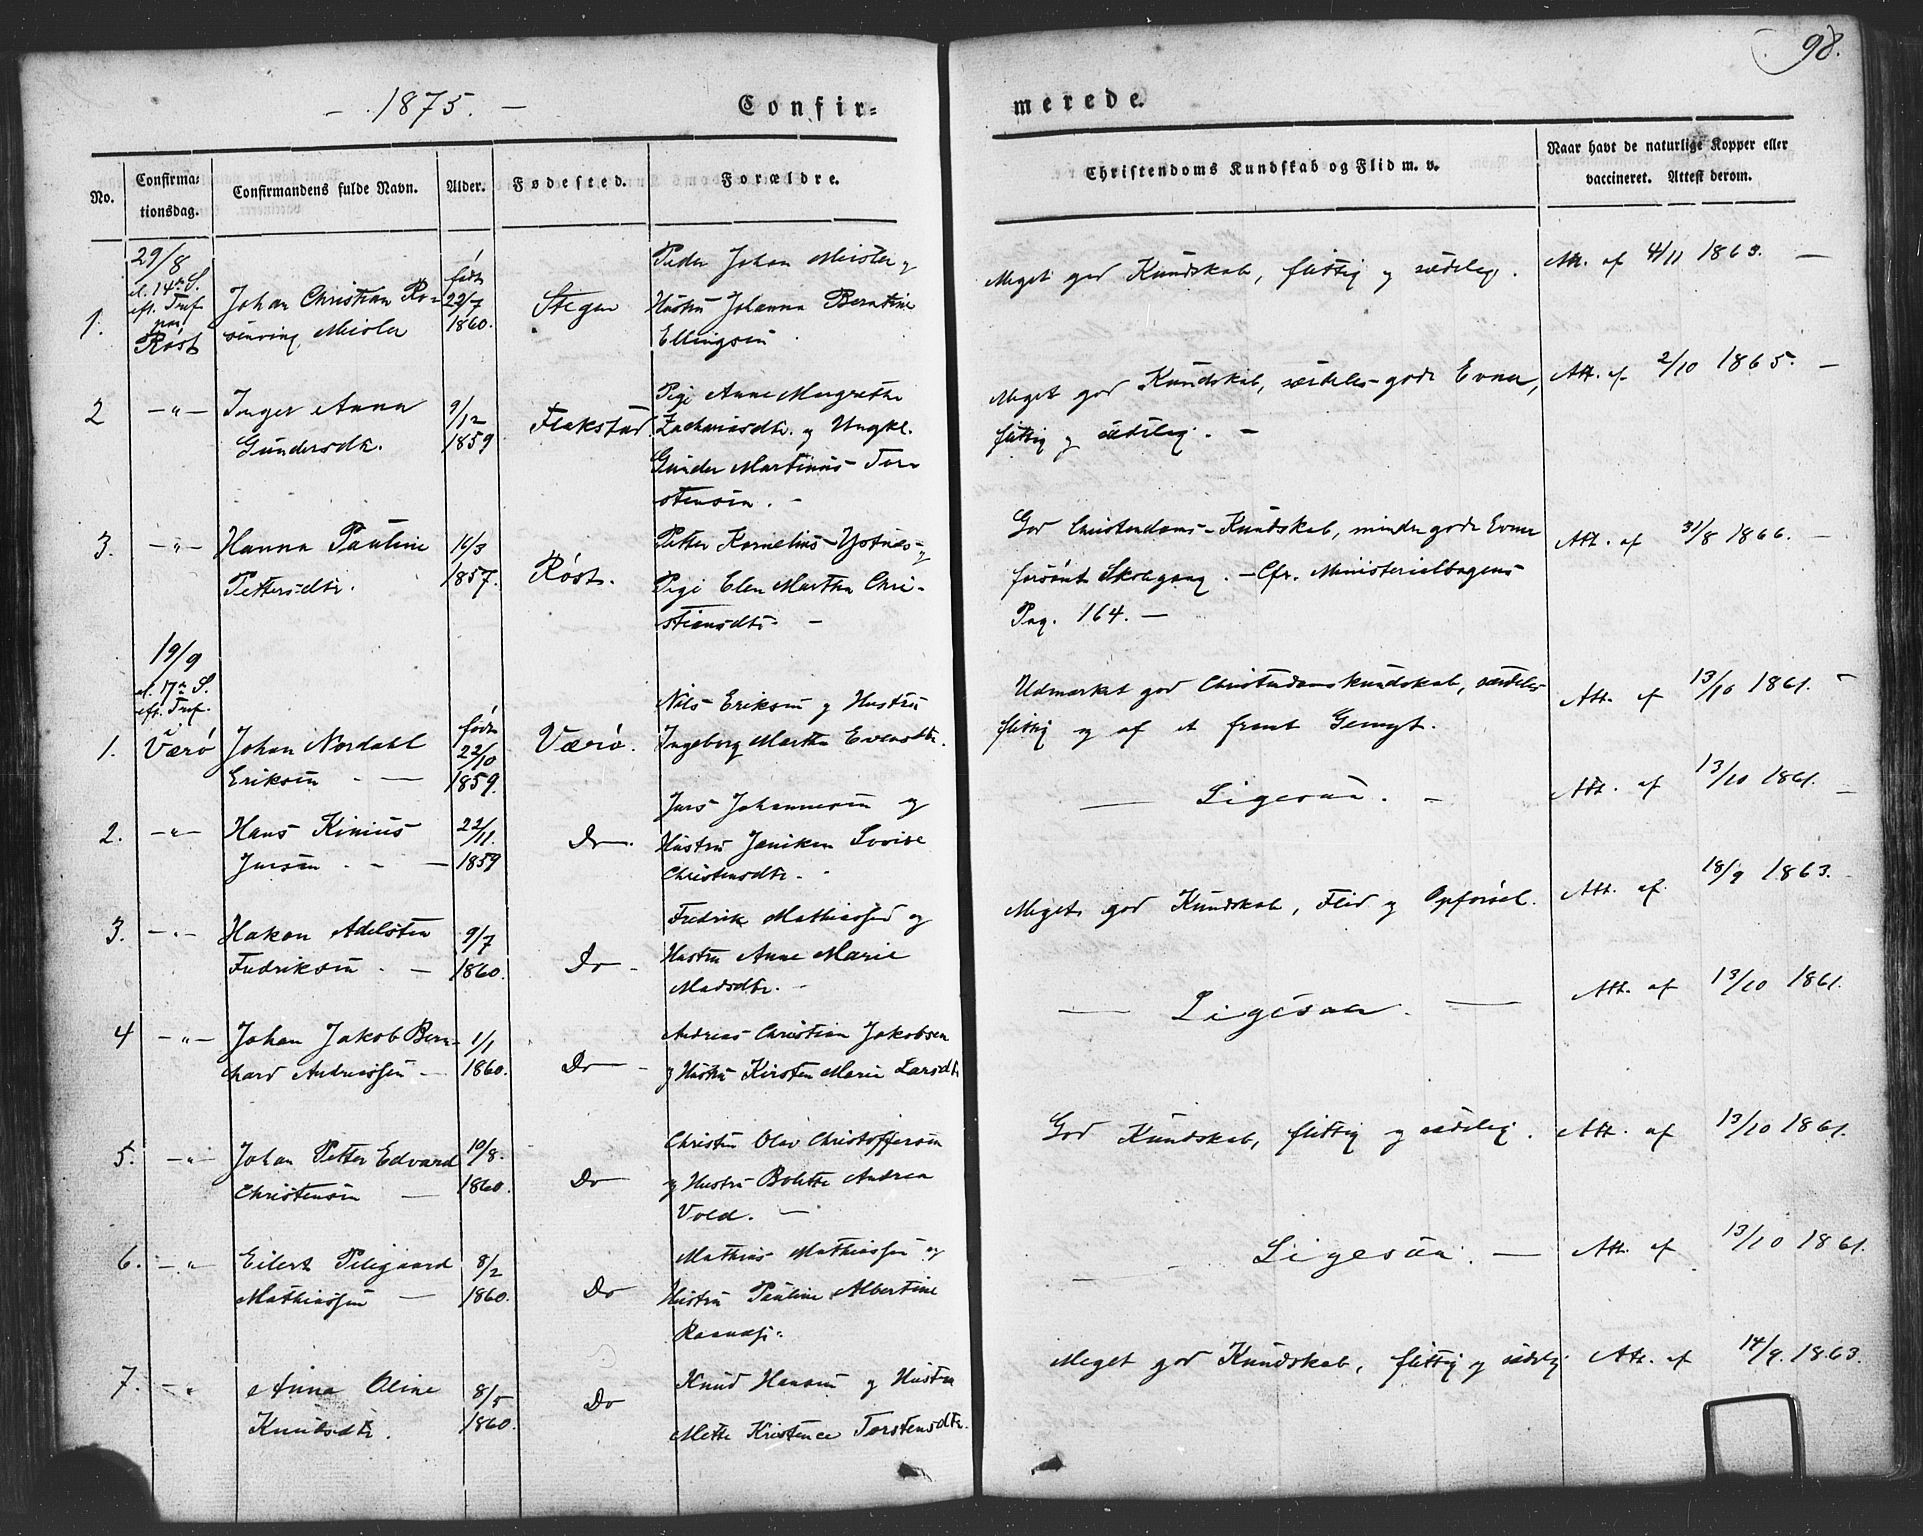 98.
- 1875. -
Confir=
merede.
No.
Confirma=
tionsdag.
Confirmandens fulde Navn.
Alder.
Fødested.
Forældre.
Christendoms Kundskab og Flid m. v.
Naar havt de naturlige Kopper eller
vaccineret. Attest derom.
29/8
14de S.
eft. Tref
paa
Røst
1.
Johan Christian Ro-
senving Meisler
født
22/7
1860.
Stegen
Peder Johan Meisler og
Hustru Johanna Berntine
Ellingsen
Meget god Kundskab, flittig og sædelig.
Att. af 4/11 1863. —
2
—"—
Inger Anna
Gundersdtr.
9/12
1859
Flakstad
Pige Anne Margrethe
Zachariasdtr. og Ungkl.
Gunder Martinus Tor-
stensen. -
Meget god Kundskab, særdeles gode Evner,
flittig og sædelig. -
Att. af 2/10 1865. —
3.
—"—
Hanna Pauline
Pettersdtr.
16/3
1857.
Røst.
Petter Kornelius Ystnes og
Pige Elen Martha Chri-
stiansdtr. -
God Christendoms-Kundskab, mindre gode Evner
forsømt Skolegang. - Cfr. Ministerialbogens
Pag. 164. —
Att. af 31/8 1866. —
19/9
17de S.
eft. Tref.
i
Værø
1.
Johan Nordahl
Eriksen
født
22/10
1859.
Værø.
Nils Eriksen og Hustru
Ingeborg Martha Evensdtr.
Udmærket god Christendomskundskab, særdeles
flittig og af et fromt Gemyt.
Att. af 13/10 1861. -
2.
—"—
Hans Kinius
Jensen
22/11.
1859
Do.
Jens Johannesen og
Hustru Janiken Lovise
Christensdtr.
— Ligesaa. -
Att. af 13/10 1861. —
3.
—"—
Hakon Adelsten
Fredriksen. —
9/7
1860.
Do -
Fredrik Mathiassen og
Hustru Anne Marie
Madsdtr. -
Meget god Kundskab, Flid og Opførsel.
Att. af 18/9 1863. -
4
—"—
Johan Jakob Bern-
hard Andreassen -
1/1
1860.
Do -
Andreas Christian Jakobsen
og Hustru Kirsten Marie Larsdtr
— Ligesaa. —
Att. af 13/10 1861.
5.
—"—
Johan Petter Edvard
Christensen —
10/8.
1860.
Do
Christen Olav Christoffersen
og Hustru Bolette Andrea
Vold. —
God Kundskab, flittig og sædelig.
Att. af 13/10 1861.
6.
—"—
Eilert Pilegaard
Mathiassen —
8/2
1860.
Do
Mathias Mathiassen og
Hustru Pauline Albertine
— Ligesaa. —
Att. af 13/10 1861.
7.
—"
Anna Oline
Knudsdtr.
8/5
1860.
Do
Knud Hansen og Hustru
Mette Kristence Torstensdtr.
Meget god Kundskab, flittig og sædelig
Att. af 14/9. 1863.